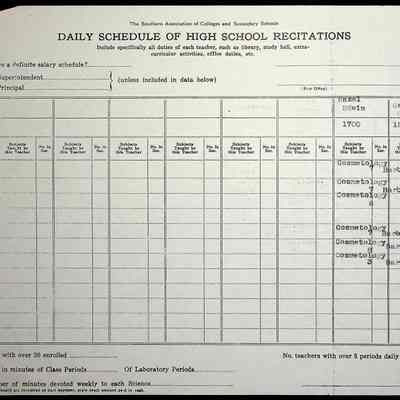 The Southern Association of Colleges and Secondary Schools
DAILY SCHEDULE OF HIGH SCHOOL RECITATIONS
Include specifically all duties of each teacher, such as library, study hall, extra-
curricular activities, office duties, etc.
e a definite salary schedule?
Superintendent
Principal
(unless included in data below)
(Post Office)
Hazel
1700
Subjects Taught by this Teacher No. in Sec. Subjects Taught by this Teacher No. in Sec. Subjects Taught by this Teacher No. in Sec. Subjects Taught by this Teacher No. in Sec. Subjects Taught by this Teacher No. in Sec. Subjects Taught by this Teacher No. in Sec. Subjects Taught by this Teacher No. in Sec.
Cosmetology
7
Cosmetology
7
Cosmetology
Cosmetology
Cosmetology
8
Cosmetology
with over 30 enrolled
No. teachers with over 5 periods daily
in minutes of Class Periods
Of Laboratory Periods
er of minutes devoted weekly to each Science